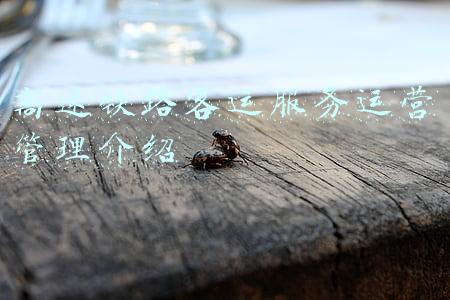 高速铁路客运服务运营
管理介绍